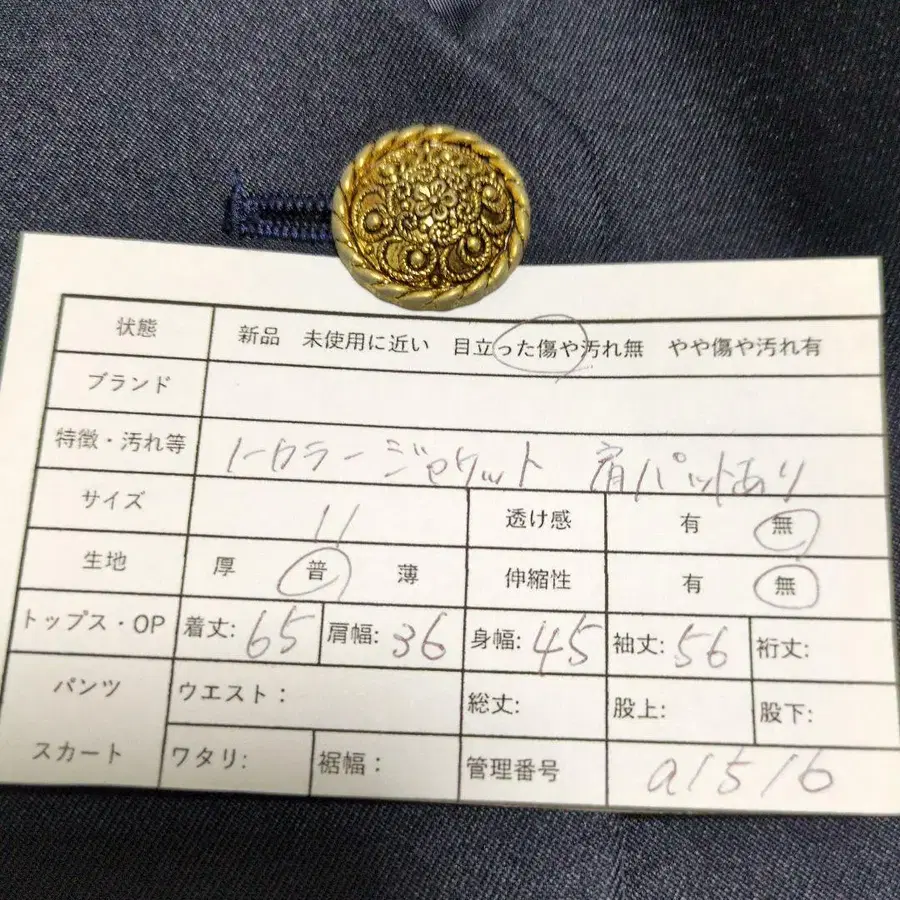 状態 新品 未使用に近い 目立った傷や汚れ無 やや傷や汚れ有
ブランド
特徴・汚れ等 ノーカラージャケット 肩パットあり
サイズ 11 透け感 有 無
生地 厚 普 薄 伸縮性 有 無
トップス・OP 着丈: 65 肩幅: 36 身幅: 45 袖丈: 56 裄丈:
パンツ ウエスト: 総丈: 股上: 股下:
スカート ワタリ: 裾幅: 管理番号 a1516